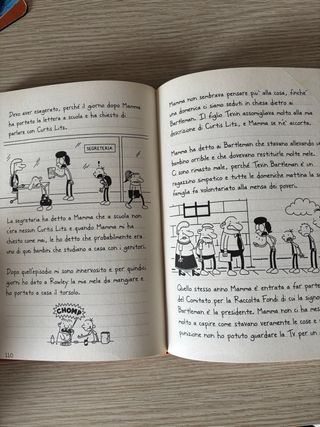 Devo aver esagerato, perché il giorno dopo Mamma
ha portato la lettera a scuola e ha chiesto di
parlare con Curtis Litz.
SEGRETERIA
La segretaria ha detto a Mamma che a scuola non
c'era nessun Curtis Litz e quando Mamma mi ha
chiesto come mai, le ho detto che probabilmente era
uno di quei bambini che studiano a casa con i genitori.
Dopo quell'episodio mi sono innervosito e per quindici
giorni ho dato a Rowley la mia mela da mangiare e
ho portato a casa il torsolo.
CHOMP
110
Mamma non sembrava pensare più alla cosa, finché
una domenica ci siamo seduti in chiesa dietro ai
Bartleman. Il figlio Tevin assomigliava molto alla mia
descrizione di Curtis Litz, e Mamma se n'è accorta.
Mamma ha detto ai Bartleman che stavano allevando un
bambino orribile e che dovevano restituirle molte mele.
Ci sono rimasto male, perché Tevin Bartleman è un
ragazzino simpatico e tutte le domeniche mattina la sua
famiglia fa volontariato alla mensa dei poveri.
Quello stesso anno Mamma è entrata a far parte
del Comitato per la Raccolta Fondi di cui la signora
Bartleman è la presidente. Mamma non ci ha messo
molto a capire come stavano veramente le cose e
punizione non ho potuto guardare la Tv per un